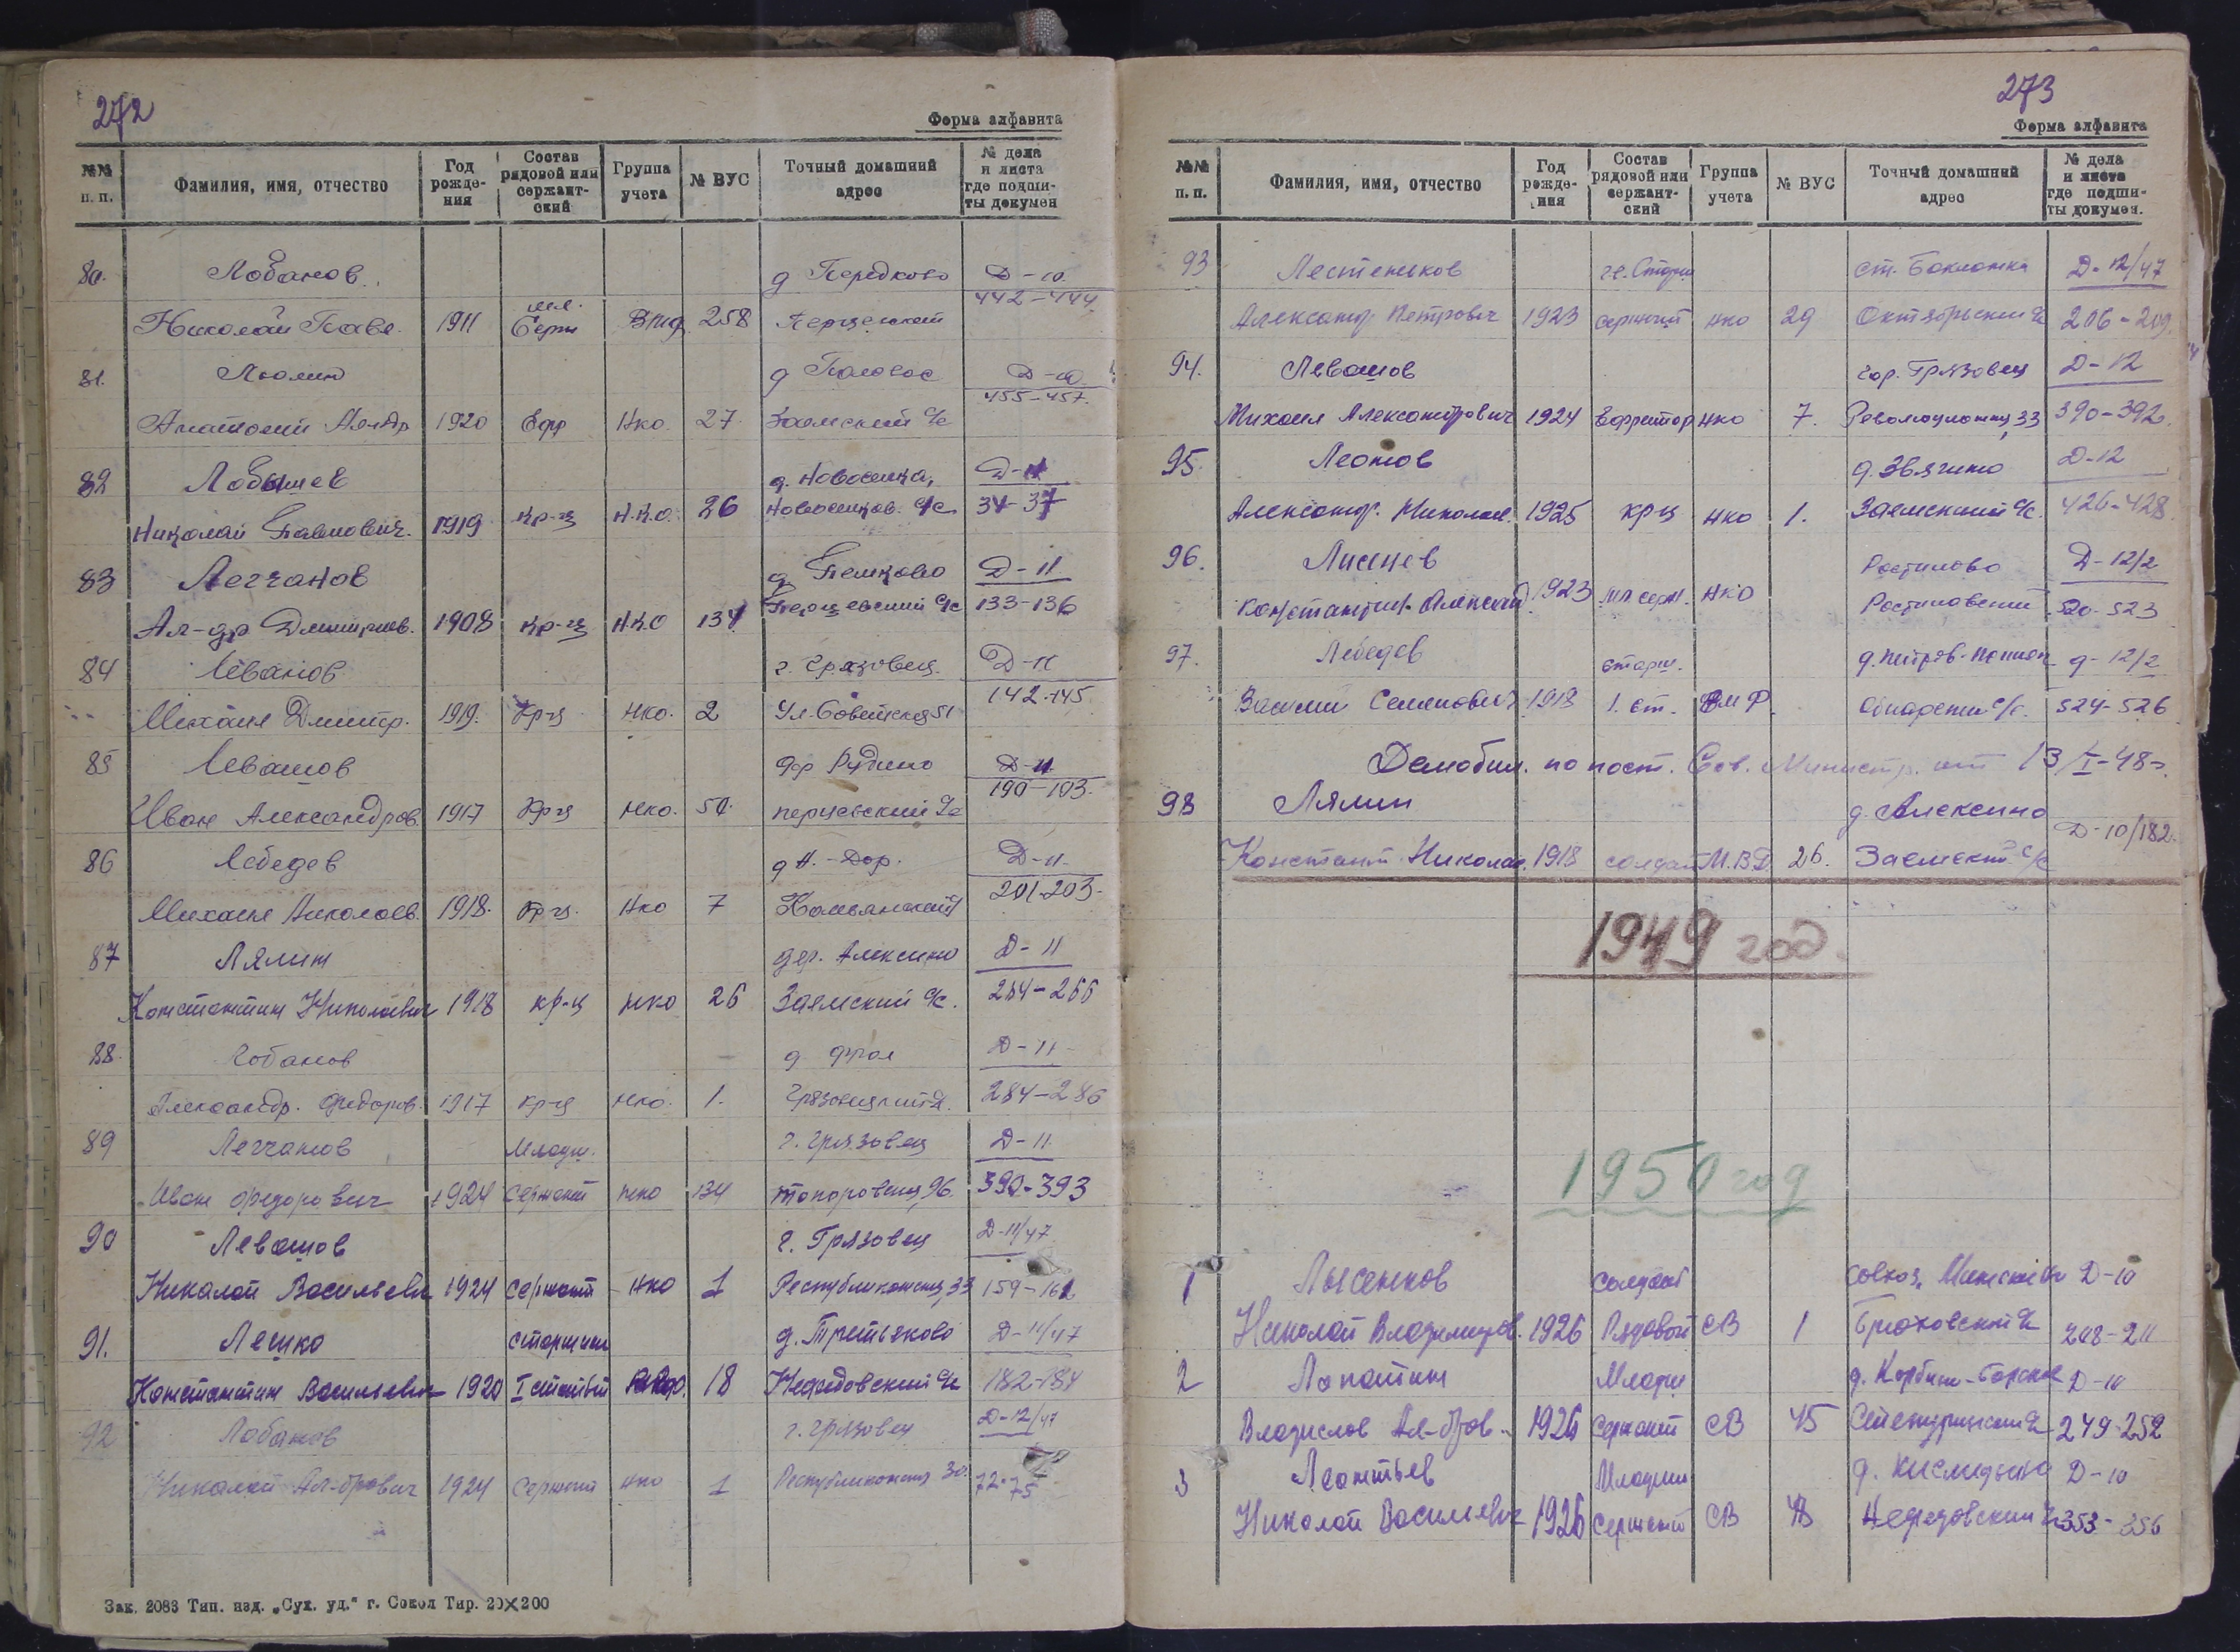 272
Форма алфавита
№№ п. п. Фамилия, имя, отчество Год рождения Состав рядовой или сержантский Группа учета № ВУС Точный домашний адрес № дела и листа где подшиты докумен
80. Лобанов д Передково Д-10
Николай Павл. 1911 мл. Серж 258 Перцевский 442-444
81. д Д-10
Анатолий 1920 Ефр Нко 27 Заемский с/с 455-457
82 Лобышев д. Новоселка, Д-11
Николай Павлович. 1919 кр-ц Н.К.О. 26 Новоселков. с/с 34-37
83 Легчанов д Пешково Д-11
Ал-др Дмитриев. 1908 кр-ц Н.К.О 134 Перцевский с/с 133-136
84 Леванов г. Грязовец. Д-11
Михаил Дмитр. 1919. Кр-ц Нко. 2 Ул. Советская 51 142-145
85 Левашов дер Рудино Д-11
Иван Александров. 1917 Кр-ц Нко. 50. перцевский с/с 190-193
86 Лебедев д Н.-Дор. Д-11
Михаил Николаев. 1918. Кр-ц. Нко 7 201-203
87 Лялин дер. Алексино Д-11
Константин Николаевич 1918 кр-ц нко 26 Заемский с/с. 264-266
88. Лобанов д Фрол Д-11
Александр. Федоров. 1917 кр-ц нко. 1. 284-286
89 Легчанов Младш. г. Грязовец Д-11
Иван Федорович 1924 Сержант нко 134 390-393
90 Левашов г. Грязовец Д-11/47
Николай Васильевич 1924 Сержант Нко 1 Республиканская, 33 159-161
91. Лешко старшина д. Третьяково Д-11/47
Константин Васильевич 1920 I статьи 18 Нефедовский с/с 182-184
92 Лобанов г. Грязовец Д-12/47
Николай Ал-дрович 1924 Сержант нко 1 Республиканская 30. 72-75
Зак. 2083 Тип. изд. „Сух. уд.“ г. Сокол Тир. 20×200
273
Форма алфавита
№№ п. п. Фамилия, имя, отчество Год рождения Состав рядовой или сержантский Группа учета № ВУС Точный домашний адрес № дела и листа где подшиты докумен.
93 Лестеньков ст. Бакланка Д-12/47
Александр Петрович 1923 сержант нко 29 Октябрьский с/с 206-209.
94. Левашов гор. Грязовец Д-12
Михаил Александрович 1924 Ефрейтор нко 7. 33 390-392
95. Леонов д. Звягино Д-12
Александр. Николаев. 1925 кр-ц нко 1. Заемский с/с. 426-428
96. Лисицев Ростилово Д-12/2
Константин Алексан 1923 мл серж. нко Ростиловский 520-523
97. Лебедев старш. Д-12/2
Василий Семенович 1918 1. ст. ВМФ. с/с. 524-526
Демобил. по пост. Сов. Министр. от 13/I-48г.
98 Лялин д. Алексино
Констант. Николае. 1918 солдат М.В.Д. 26. Заемский с/с Д-10/182.
1949 год.
1950 год
1 Лысенков Солдат совхоз. Д-10
Николай Владимиров. 1926 Рядовой СВ 1 Брюховский с/с 208-211
2 Лопатин Младш Д-10
Владислов Ал-дров. 1926 Сержант СВ 45 249-252
3 Леонтьев Младший д. Д-10
Николай Васильевич 1926 Сержант СВ Нефедовский с/с 353-356